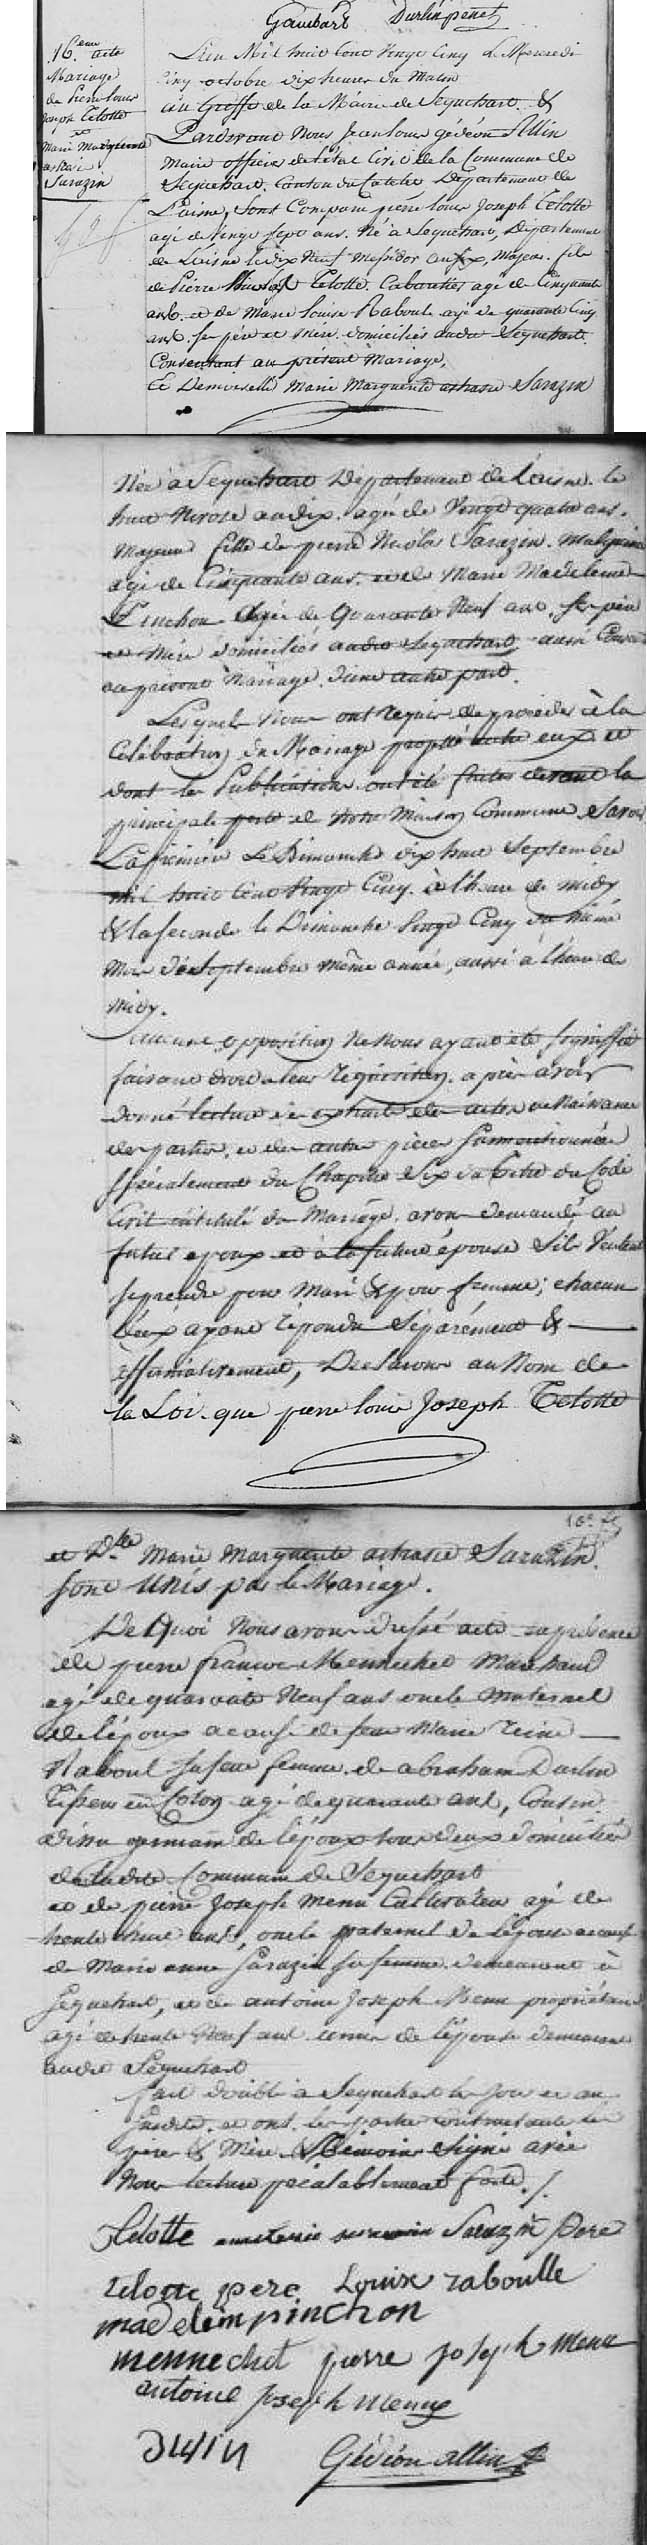 Gambart Durlin penet
16.eme acte
Mariage
de Pierre louis
Joseph Telotte
et
Marie Marguerite
astrasie
Sarazin
L'an Mil huit Cent Vingt Cinq Le Mercredi
Cinq octobre dix heures du Matin
au Greffe de la Mairie de Sequehart &
Pardevant Nous Jean louis gédéon Allin
Maire officier de l'état Civil de la Commune de
Sequehart, Canton du Catelet Département de
L'aisne, Sont Comparu pierre louis Joseph Telotte
agé de vingt sept ans. Né a Sequehart, Département
de L'aisne le dix Neuf Messidor an six, Majeur. fils
de Pierre Telotte. Cabaretier agé de Cinquante
ans. et de Marie Louise Raboule agé de quarante Cinq
ans. ses père et Mère domiciliés audit Sequehart.
Consentant au présent Mariage,
Et Demoiselle Marie Marguerite astrasie Sarazin
Née a Sequehart Département de L'aisne. le
huit Nivose an dix. agé de Vingt quatre ans.
Majeure fille de pierre Nicolas Sarazin.
agé de Cinquante ans. et de Marie Madeleine
Pinchon agée de Quarante Neuf ans. ses père
et Mère domiciliés audit Sequehart, aussi
au présent Mariage. d'une autre part.
Lesquels Nous ont requis de procéder à la
Célébration du Mariage projetté entre eux et
dont les Publications ont été faites devant la
principale porte de Notre Maison Commune Savoir
La première Le Dimanche dix huit Septembre
mil huit Cent Vingt Cinq. à l'heure de midy
& la seconde le Dimanche Vingt Cinq du même
Mois de Septembre même année, aussi à l'heure de
midy.
aucune opposition Ne Nous ayant été signiffié
faisant droit a leur réquisition. après avoir
donné lecture des extraits des actes de Naissance
des parties. et des autres pièces susmentionnées
spécialement du Chapitre Six du Titre du Code
Civil intitulé du Mariage. avons demandé au
futur epoux et à la future épouse S'ils Veulent
se prendre pour Mari & pour femme; chacun
d'eux ayant répondu Séparément &
affirmativement, Déclarons au Nom de
la Loi. que pierre louis Joseph Telotte
et D.lle Marie Marguerite astrasie Sarazin.
sont Unis par le Mariage.
De Quoi Nous avons dressé acte en présence
de pierre francois Mennechet Marchand
agé de quarante Neuf ans oncle maternel
de l'époux a cause de feue Marie reine
Raboul sa feue femme. de abraham Durlin
Tisseur en Coton agé de quarante ans, Cousin
d'issu germain de l'époux tous deux domiciliés
de ladite Commune de Sequehart
et de pierre Joseph Menu Cultivateur agé de
trente ans, oncle paternel de l'épouse a cause
de Marie anne Sarazin sa femme. demeurant à
Sequehart, et de antoine Joseph Menu propriétaire
agé de trente Neuf ans de l'épouse demeurant
audit Sequehart
fait double à Sequehart les jour et an
susdits. et ont les parties contractante les
pere & Mère & témoins Signé avec
Nous lecture préalablement faite./.
Telotte Sarazin pere
telotte pere Louise raboulle
madelein pinchon
mennechet pierre joseph menu
antoine joseph menu
Durlin Gédéon allin